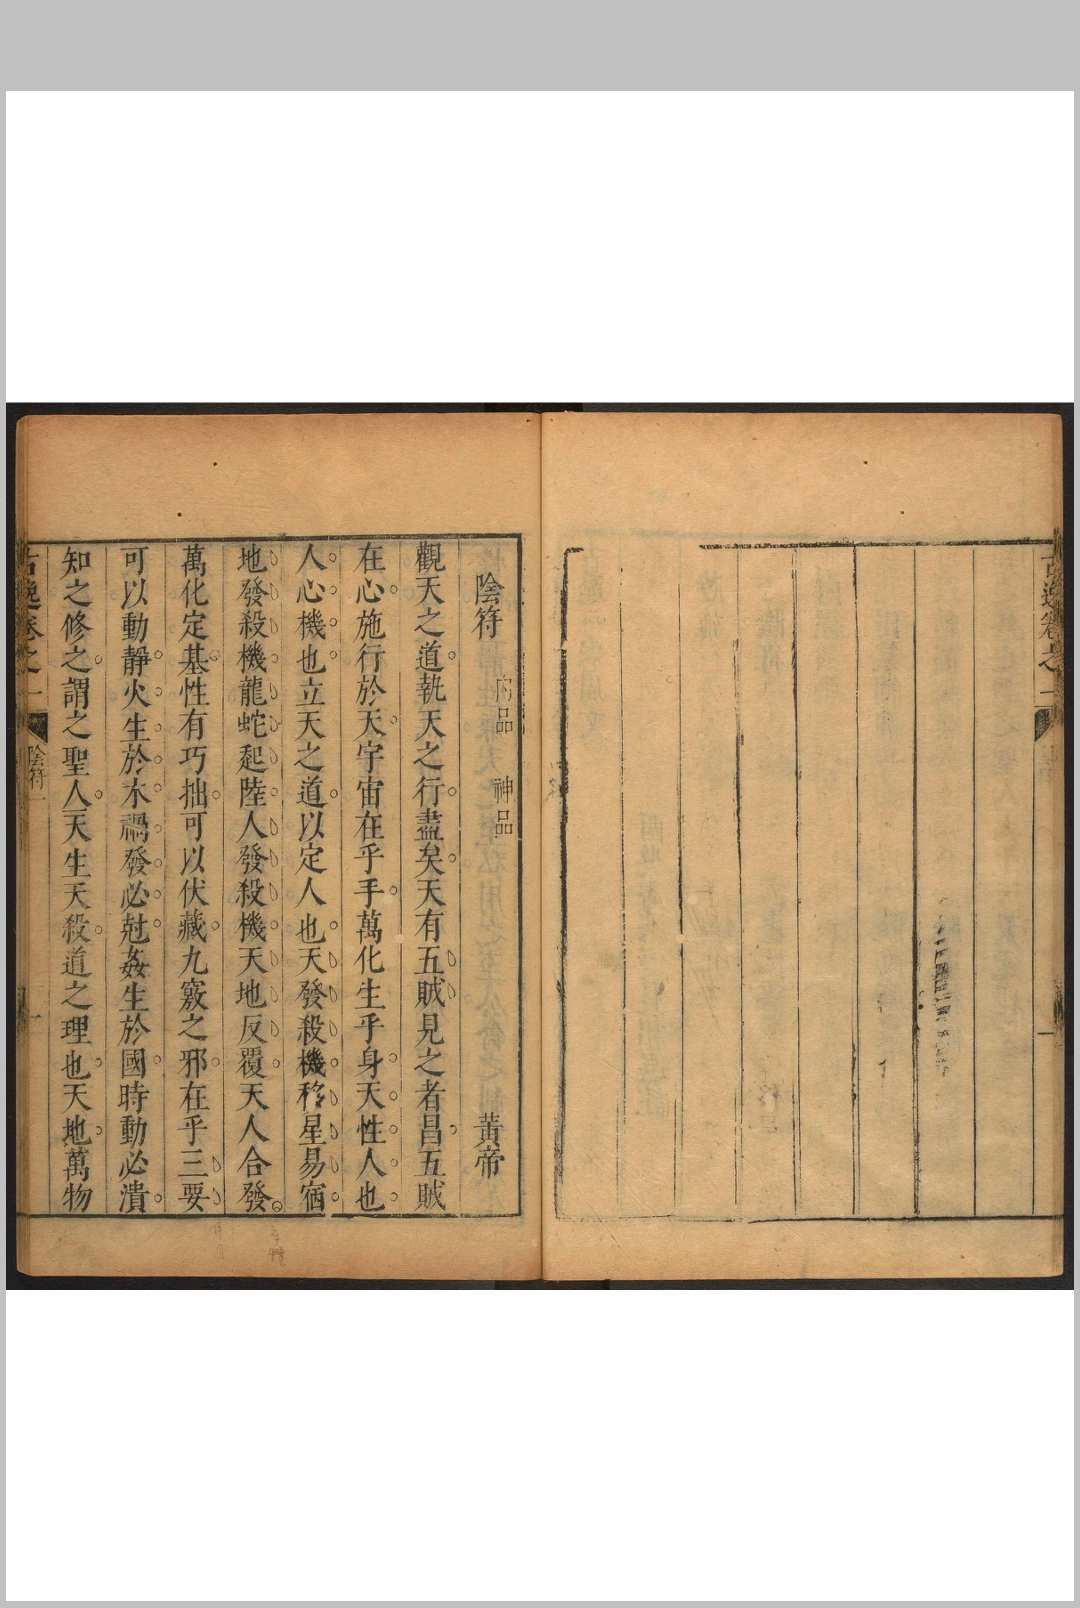 古逸卷之一
一
陰符
神品
黃帝
觀天之道執天之行盡矣天有五賊見之者昌五賊
在心施行於天宇宙在乎手萬化生乎身天性人也
人心機也立天之道以定人也天發殺機移星易宿
地發殺機龍蛇起陸人發殺機天地反覆天人合發
萬化定基性有巧拙可以伏藏九竅之邪在乎三要
可以動靜火生於木禍發必尅姦生於國時動必潰
知之修之謂之聖人天生天殺道之理也天地萬物
古逸卷之一
陰符一
一